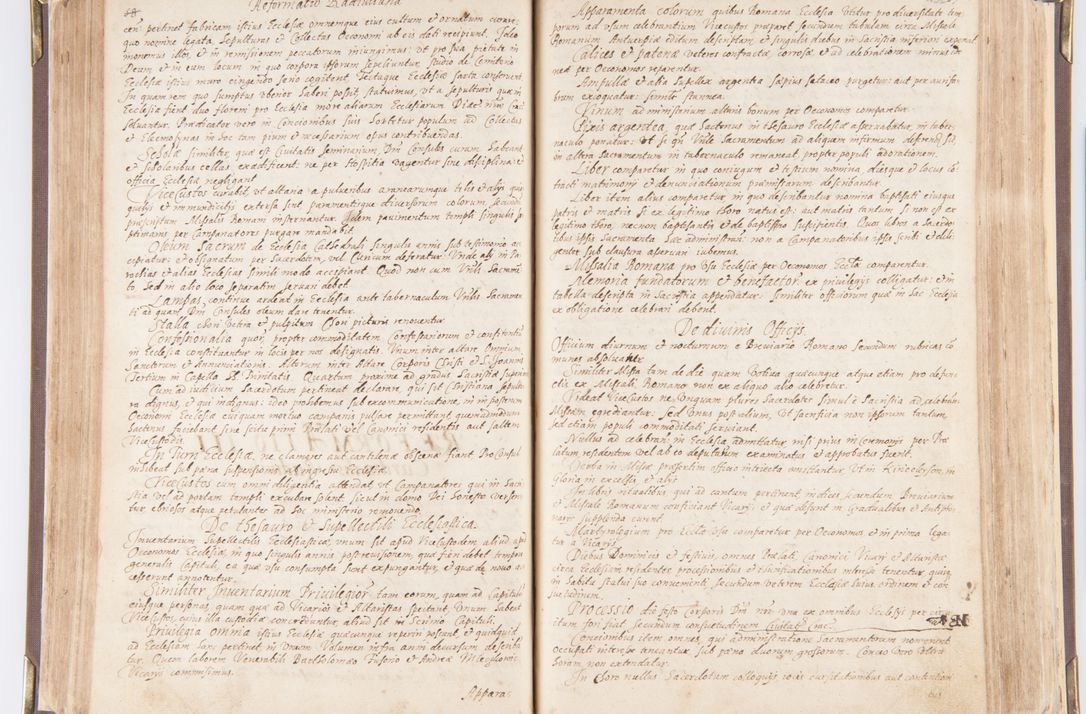 68
Reformatio Radiviliana
cen: pertinet fabricam istius Ecclesiæ omnemque eius cultum et ornatum curare
quo nomine legata Sepulturæ et Collectas Oeconom: ab eis dati recipiunt. Ideo
monemus illos, et in remissionem peccatorum iniungimus, ut pro sua pietate in
Deum et in eam locum in quo corpora ipsorum sepeliuntur, studio de Cemiterio
Ecclesiæ istius muro cingendo serio cogitent, Tectaque Ecclesiæ sarta conservent
In quam rem quo sumptus uberior haberi possit, statuimus, ut a sepulturis quæ in
Ecclesia fient, alio floreni pro Ecclesia more aliarum Ecclesiarum Diæc: nræ Crac:
solvantur. Prædicator vero in Concionibus suis hortetur populum ad Collectas
et Elæmosynas in hoc tam pium et necessarium opus contribuendas.
Scholæ similiter, quæ est Civitatis seminarium, Dni Consules curam habeant
et scholaribus cellas exædificent, ne per Hospitia vagentur sine disciplina et
officia Ecclesiæ negligant.
Vicecustos curabit, ut altaria a pulveribus aranearumque telis et alijs qui-
busvis immundicijs extersa sint, paramentisque diversorum colorum, secundum
præscriptum Missalis Romani insternantur. Idem pavimentum templi singulis se-
ptimanis per Campanatores purgari mandabit.
Oleum Sacrum de Ecclesia Cathedrali singulis annis sub testimonio ac-
cipiatur: et obsignatum per Sacerdotem, vel Curicum deferatur: Unde alij in Pa-
rochias et alias Ecclesias simili modo accipiant. Quod non cum Vnli Sacramen-
to sed in alio loco separatim servari debet.
Lampas continue ardeat in Ecclesia ante tabernaculum Vnlis Sacramen-
ti ad quam Dni Consules oleum dare tenentur.
Stalla Chori spectra et pulpitum Chori picturis renoventur.
Confessionalia quoq: propter commoditatem Confessariorum et confitentium
in Ecclesia constituantur in locis per nos designatis. Unum inter altare Omnium
Sanctorum et Annunciationis. Alterum inter Altare Corporis Christi et S. Joannis
Tertium in Capella SS. Trinitatis. Quartum proxime ad gradus Sacristiæ superioris
Cum ad iudicium Sacerdotum pertineat declarare, qui sit Christiana sepultu-
ra dignus, et qui indignus: ideo prohibemus sub excommunicatione, ne in posterum
Oeconomi Ecclesiæ cuiquam mortuo campanis pulsare permittant, quemadmodum
hactenus faciebant sine scitu primi Prælati vel Canonici residentis aut saltem
Vicecustodis.
In Turri Ecclesiæ, ne clamores aut cantilenæ obscænæ fiant, Pro Consul
inhibeat sub pœna suspensionis ab ingressu Ecclesiæ.
Vicecustos cum omni diligentia attendat, ut Campanatores qui in Sacri-
stia vel ad portam templi excubare solent, sicut in domo Dei honeste versen-
tur ebriosos atque petulantes ab hoc ministerio removendo.
De Thesauro et Supellectili Ecclesiastica.
Inventarium Supellectilis Ecclesiasticæ, unum sit apud Vicecustodem, aliud apud
Oeconomos Ecclesiæ, in quo singulis annis post revisionem, quæ fieri debet tempore
generalis Capituli, ea quæ usu consumpta sunt expungantur, et quæ de novo ac-
cesserunt annotentur.
Similiter Inventarium Privilegior: tam eorum, quam ad Capitulum
eiusque personas, quam quæ ad Vicarios et Altaristas spectant, Unum habeat
Vicecustos, cui illa custodia concreduntur, aliud sit in Scrinio Capituli.
Privilegia omnia istius Ecclesiæ quæcunque reperiri possunt, et quidquid
ad Ecclesiam hanc pertinet, in Unum Volumen infra anni decursum describa-
tur. Quem laborem Venerabili Bartholomæo Fusorio et Andreæ
Vicarijs commisimus.
Appara-
Apparamenta colorum quibus Romana Ecclesia Utitur pro diversitate tem-
porum ad usum celebrantium Vicecustos præparet, secundum tabulam circa Missale
Romanum Antverpiæ editum descriptam, et singulis diebus in Sacristia inferiori exponat.
Calices et patenæ veteres contractæ, corrosæ et ad celebrationem minus ido-
neæ per Oeconomos reparentur.
Ampullæ et alia supellex argentea sæpius sælaceo purgetur: aut per aurifa-
brum exoquatur: similiter stannea.
Vinum ad ministerium altaris bonum per Oeconomos comparetur.
Pixis argentea, quæ hactenus in thesauro Ecclesiæ asservabatur, in taber-
naculo ponatur: ut si qn Vnle Sacramentum ad aliquem infirmum deferendu sit,
in altera Sacramentum in tabernaculo remaneat, propter populi adorationem.
Liber comparetur in quo coniugum et testium nomina, diesque et locus con-
tracti matrimonij et denunciationum præmissarum describantur.
Liber item alius comparetur, in quo describantur nomina baptisati eiusque
patris et matris si ex legitimo thoro natus est: aut matris tantum si non est ex
legitimo thoro, necnon baptisantis et de baptismo suscipientis. Quos libros a Sacerdo-
tibus ipsis Sacramenta hæc administrari: non a Campanatoribus ipsis scribi et dili-
genter sub clausura asservari iubemus.
Missalia Romana pro usu Ecclesiæ per Oeconomos Ecctæ comparentur.
Memoria fundatorum et benefactor: ex privilegijs colligatur: et in
tabella descripta in Sacristia appendatur: similiter officiorum quæ in hac Ecclesia
ex obligatione celebrari debent.
De divinis Officijs.
Officium diurnum et nocturnum e Breviario Romano secundum rubricas co-
munes absolvatur.
Similiter Missa tam de die quam Votiva quæcunque atque etiam pro defun-
ctis ex Missali Romano non ex aliquo alio celebretur.
Videat Vicecustos ne Unquam plures Sacerdotes simul e Sacristia ad celebran.
Missam egrediantur: sed Unus post alium, ut sacrificia non ipsorum tantum,
sed etiam populi commoditati serviant.
Nullus ad celebrandu in Ecclesia admittatur nisi prius in Ceremonijs per Præ-
latum residentem vel ab eo deputatum examinatus et approbatus fuerit.
Verba in Missæ præsertim officio interiecta omittantur. Ut in Kirieeleyson, in
Gloria in excelsis, et alijs.
In libris ritualibus, qui ad cantum pertinent, indices secundum Breviarium
et Missale Romanum conficiant Vicarij et quæ desunt in Gradualibus et Antipho-
narijs supplenda curent.
Martyrologium pro Ecclæ usu comparetur per Oeconomos et in prima lega-
tur a Vicarijs.
Diebus Dominicis et festivis, omnes Prælati, Canonici Vicarij et Altaristæ
circa Ecclesiam residentes processionibus et thurificationibus interesse tenentur, quique
in habitu statui suo convenienti secundum veterem Ecclesiæ huius ordinem et con-
suetudinem.
Processio die festo Corporis Dni nri una ex omnibus Ecclesijs per circu-
itum fori fiat, secundum consuetudinem Civitatis Crac:
Concionibus item omnes, qui administratione Sacramentorum non erint
occupati interesse teneantur sub pœna duorum grossorum. Concio vero Ultra
horam, non extendatur.
In Choro nullus Sacerdotum colloquijs iocis cursitationibus aut contention-
bus